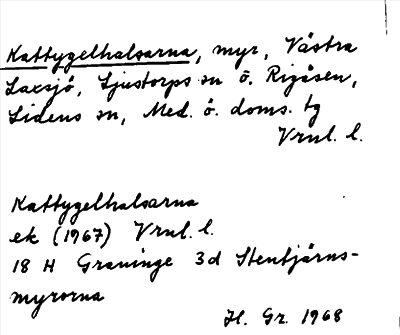 Kattygelhalsarna, myr, Västra
Laxsjö, Ljustorps sn ö. Rigåsen,
Lidens sn, Med. ö. doms. tg
Vrnl. l.
Kattygelhalsarna
ek (1967) Vrnl. l.
18 H Graninge 3d Stentjärns-
myrorna
H. Gr. 1968